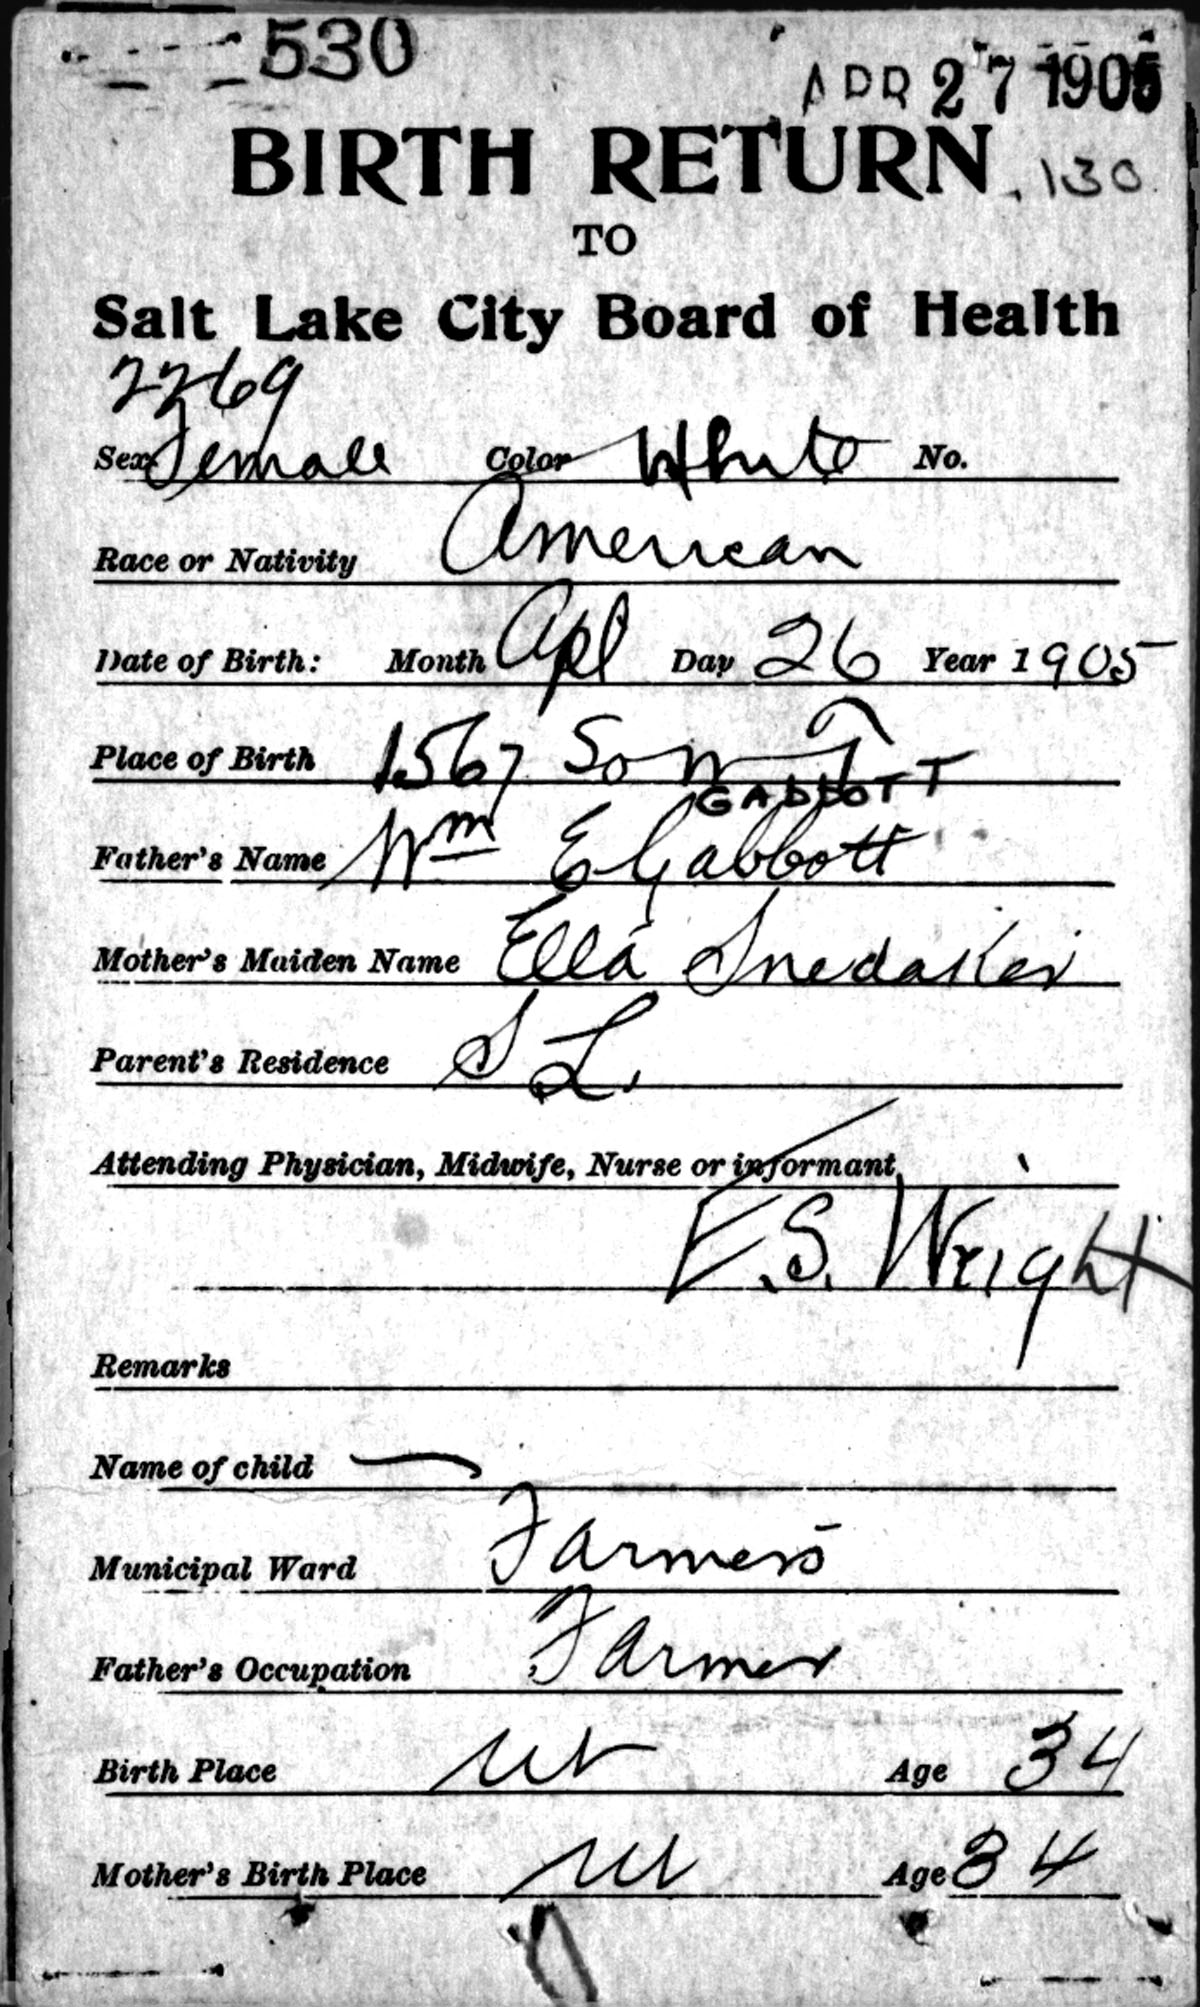 530
APR 27 1905
BIRTH RETURN
130
TO
Salt Lake City Board of Health
2269
Sex Female Color White No.
Race or Nativity American
Date of Birth: Month Apl Day 26 Year 1905
Place of Birth 1567 So
GABBOTT
Father's Name Wm E Gabbott
Mother's Maiden Name Ella Snedaker
Parent's Residence S L.
Attending Physician, Midwife, Nurse or informant,
E.S. Wright
Remarks
Name of child —
Municipal Ward Farmers
Father's Occupation Farmer
Birth Place Ut Age 34
Mother's Birth Place Ut Age 34